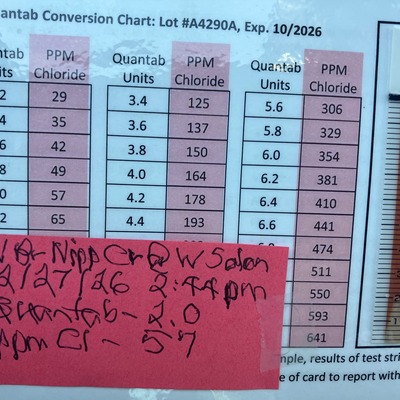 uantab Conversion Chart: Lot #A4290A, Exp. 10/2026
uantab Units PPM Chloride Quantab Units PPM Chloride Quantab Units PPM Chloride
2 29 3.4 125 5.6 306
4 35 3.6 137 5.8 329
6 42 3.8 150 6.0 354
8 49 4.0 164 6.2 381
0 57 4.2 178 6.4 410
2 65 4.4 193 6.6 441
474
511
550
593
641
Br Nipp Cr @ W Salon
2/27/26 2:44pm
Quantab - 2.0
ppm Cl - 57
mple, results of test stri
e of card to report with